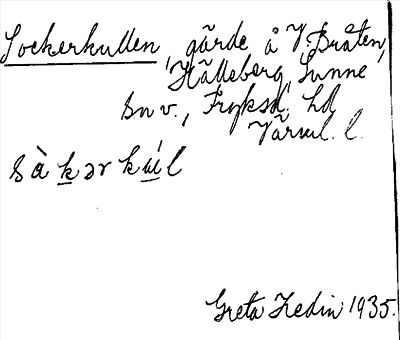 Sockerkullen, gärde å V. Bråten,
Hälleberg, Sunne
sn v., Fryksd. hd
Värml. l.
sàkərkúl
Greta Hedin 1935.